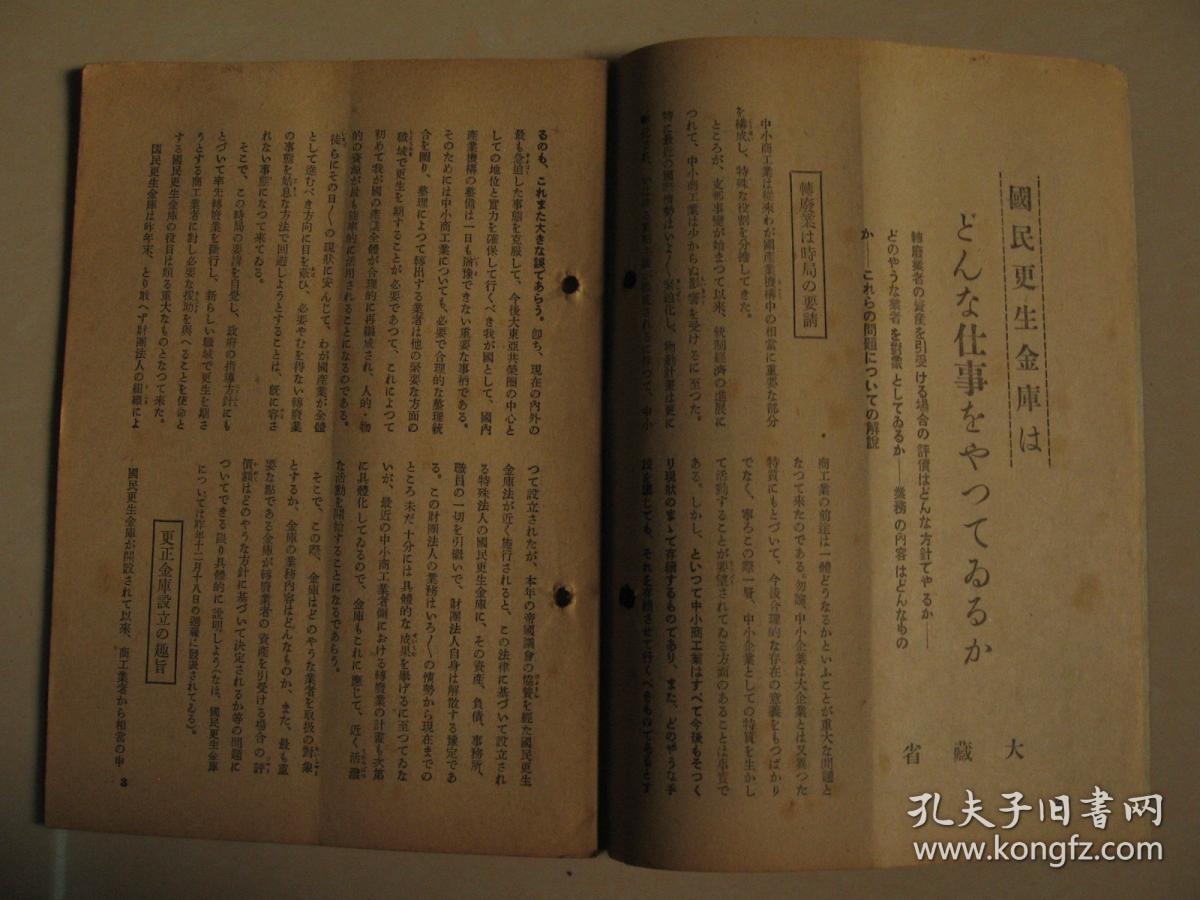 國民更生金庫は
どんな仕事をやつてゐるか
轉廢業者の資産を引受ける場合の評價はどんな方針でやるか──
どのやうな業者を對象としてゐるか──業務の内容はどんなもの
か──これらの問題についての解説
大藏省
轉廢業は時局の要請
中小商工業は從來わが國産業機構中の相當に重要な部分
を構成し、特殊な役割を分擔してきた。
ところが、支那事變が始まつて以來、統制經濟の進展に
つれて、中小商工業は少からぬ影響を受けるに至つた。
特に最近の國際情勢はいよ〳〵緊迫化し、物動計畫は更に
商工業の前途は一體どうなるかといふことが重大な問題と
なつて來たのである。勿論、中小企業は大企業とは又異つた
特質にもとづいて、今後合理的な存在の意義をもつばかり
でなく、寧ろこの際一層、中小企業としての特質を生かし
て活動することが要望されてゐる方面のあることは事實で
ある。しかし、といつて中小商工業はすべて今後もそつく
り現狀のまゝで存續するものであり、また、どのやうな手
段を講じても、それを存續させて行くべきものでもるとす
るのも、これまた大きな誤であらう。卽ち、現在の内外の
最も急迫した事態を克服して、今後大東亞共榮圈の中心と
しての地位と實力を確保して行くべき我が國として、國内
産業機構の整備は一日も猶豫できない重要な事柄である。
そのためには中小商工業についても、必要で合理的な整理統
合を圖り、整理によつて轉出する業者は他の緊要な方面の
職域で更生を期することが必要であつて、これによつて
初めて我が國の産業全體が合理的に再編成され、人的・物
的の資源が最も能率的に活用されることになるのである。
徒らにその日〳〵の現狀に安んじて、わが國産業が全體
として進むべき方向に目を蔽ひ、必要やむを得ない轉廢業
の事態を姑息な方法で回避しようとすることは、既に容さ
れない事態になつて來てゐる。
そこで、この時局の要請を自覺し、政府の指導方針にも
とづいて率先轉廢業を斷行し、新らしい職域で更生を期さ
うとする商工業者に對し必要な援助を與へることを使命と
する國民更生金庫の役目は頗る重大なものとなつて來た。
國民更生金庫は昨年末、とり敢へず財團法人の組織によ
つて設立されたが、本年の帝國議會の協賛を經た國民更生
金庫法が近く施行されると、この法律に基づいて設立され
る特殊法人の國民更生金庫に、その資産、負債、事務所、
職員の一切を引繼いで、財團法人自身は解散する豫定であ
る。この財團法人の業務はいろ〳〵の情勢から現在までの
ところ未だ十分には具體的な成果を擧げるに至つてゐな
いが、最近の中小商工業者側における轉廢業の計畫も次第
に具體化してゐるので、金庫もこれに應じて、近く活潑
な活動を開始することになるであらう。
そこで、この際、金庫はどのやうな業者を取扱の對象
とするか、金庫の業務内容はどんなものか、また、最も重
要な點である金庫が轉廢業者の資産を引受ける場合の評
價額はどのやうな方針に基づいて決定されるか等の問題に
ついてできる限り具體的に説明しよう(なほ、國民更生金庫
については昨年十二月十八日の週報に發表されてゐる)。
更正金庫設立の趣旨
國民更生金庫が開設されて以來、商工業者から相當の申
3
孔夫子旧书网
www.kongfz.com